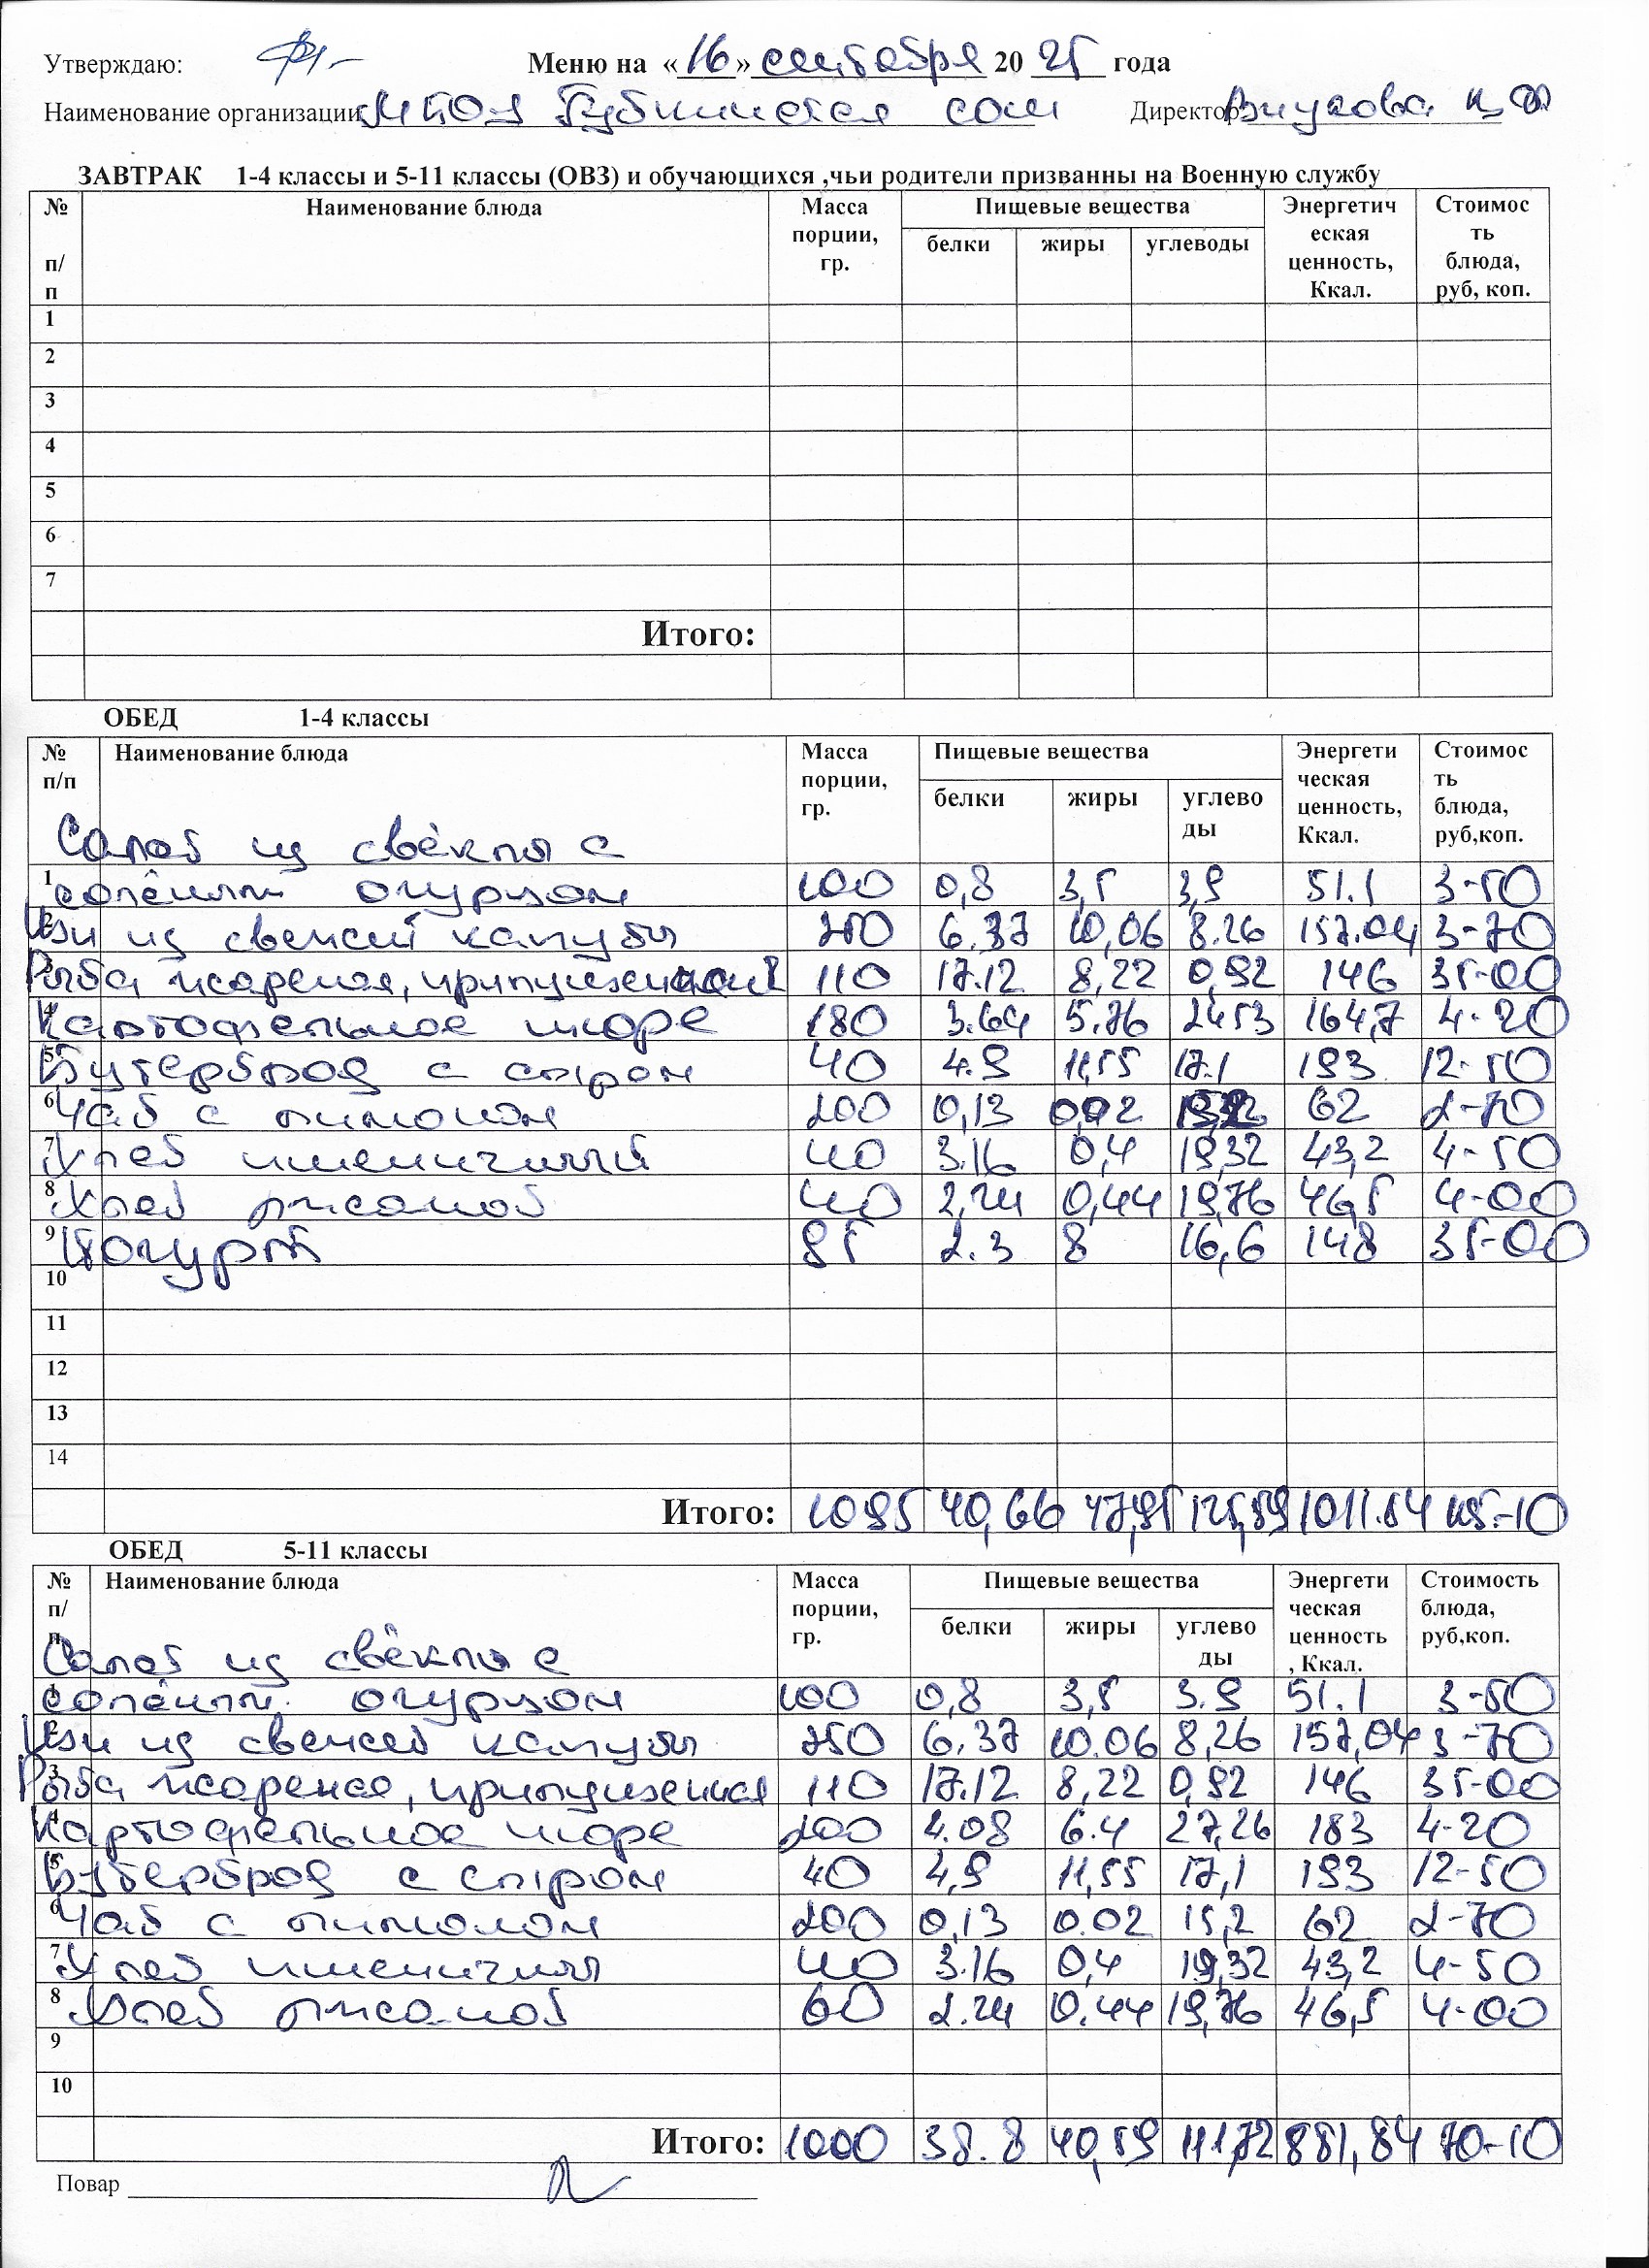 Утверждаю: Меню на «16» сентября 2025 года
Наименование организации МКОУ Губчинская СОШ Директор
ЗАВТРАК 1-4 классы и 5-11 классы (ОВЗ) и обучающихся ,чьи родители призванны на Военную службу
№ п/п Наименование блюда Масса порции, гр. Пищевые вещества Энергетическая ценность, Ккал. Стоимость блюда, руб, коп.
белки жиры углеводы
1
2
3
4
5
6
7
Итого:
ОБЕД 1-4 классы
№ п/п Наименование блюда Масса порции, гр. Пищевые вещества Энергетическая ценность, Ккал. Стоимость блюда, руб,коп.
белки жиры углеводы
Салат из свёклы с
1 солёным огурцом 100 0,8 3,5 3,9 51.1 3-50
2 Щи из свежей капусты 250 6.37 10,06 8.26 157.04 3-70
3 Рыба жареная, припущенная 110 17.12 8,22 0,92 146 35-00
4 Картофельное пюре 180 3.64 5.76 24 53 164,7 4-20
5 Бутерброд с сыром 40 4.9 11,55 17.1 193 12-50
6 Чай с лимоном 200 0,13 0,02 62 2-70
7 Хлеб пшеничный 40 3.16 0,4 19,32 43,2 4-50
8 Хлеб ржаной 40 2,24 0,44 19,76 46,5 4-00
9 Йогурт 85 2.3 8 16,6 148 35-00
10
11
12
13
14
Итого: 1095 40,66 47,95 125,59 1011.54 105-10
ОБЕД 5-11 классы
№ п/п Наименование блюда Масса порции, гр. Пищевые вещества Энергетическая ценность, Ккал. Стоимость блюда, руб,коп.
белки жиры углеводы
Салат из свёклы с
1 солёным огурцом 100 0,8 3,5 3.9 51.1 3-50
2 Щи из свежей капусты 250 6.37 10.06 8,26 157,04 3-70
3 Рыба жареная, припущенная 110 17.12 8,22 0,92 146 35-00
4 Картофельное пюре 200 4.08 6.4 27,26 183 4-20
5 Бутерброд с сыром 40 4,9 11,55 17,1 193 12-50
6 Чай с лимоном 200 0,13 0.02 15,2 62 2-70
7 Хлеб пшеничный 40 3.16 0,4 19,32 43,2 4-50
8 Хлеб ржаной 60 2.24 0.44 19,76 46,5 4-00
9
10
Итого: 1000 38.8 40,59 111,72 881,84 70-10
Повар